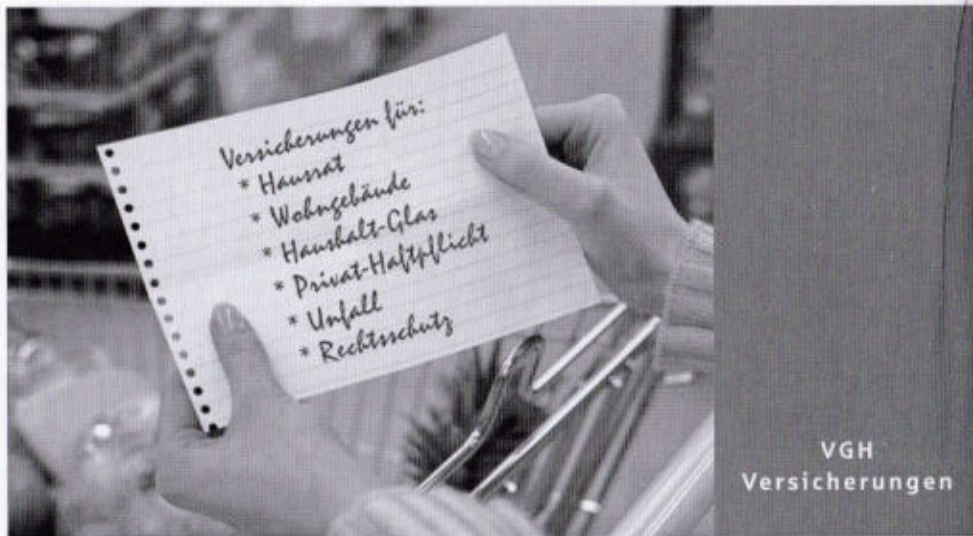 Versicherungen für:
* Hausrat
* Wohngebäude
* Haushalt-Glas
* Privat-Haftpflicht
* Unfall
* Rechtsschutz
VGH
Versicherungen